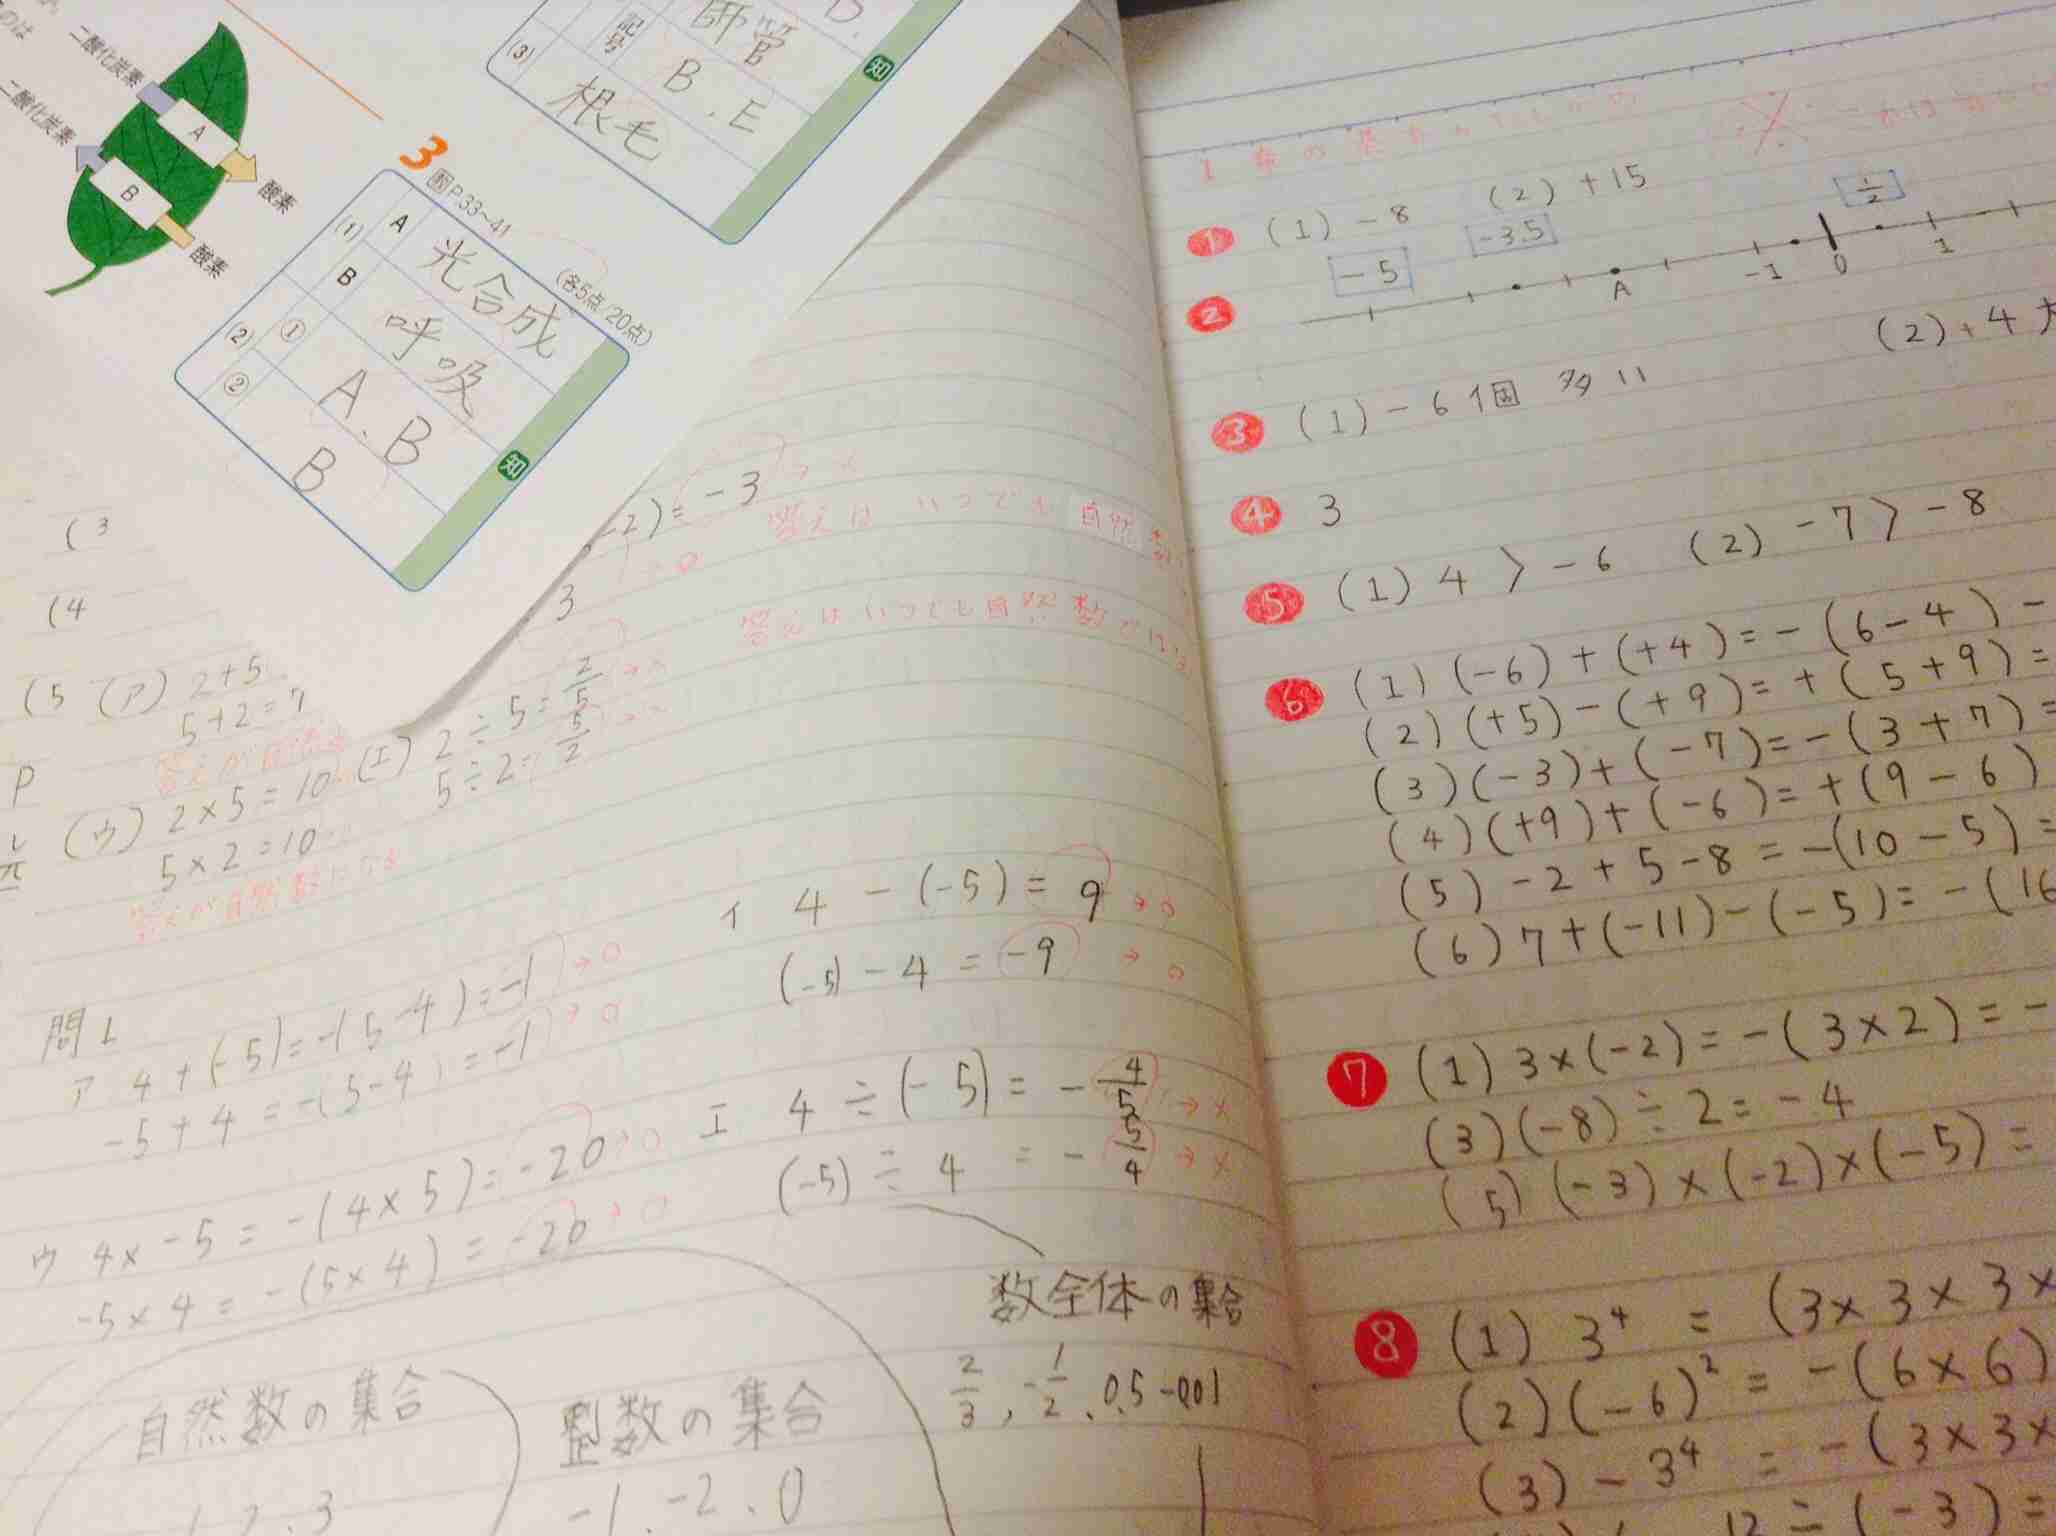 二酸化炭素
二酸化炭素
A
B
酸素
酸素
師管
記号
B、E
(3) 根毛
知
3
P.33～41
(各5点/20点)
(1) A 光合成
B 呼吸
(2) ① A、B
② B
知
(3
(4
(5 (ア) 2+5
5+2=7
(ウ) 2×5=10
5×2=10
(エ) 2÷5=2/5
5÷2=5/2
-2)=-3
答えはいつでも自然
3
答えはいつでも自然数で
問1
ア 4+(-5)=-(5-4)=-1→○
-5+4=-(5-4)=-1→○
イ 4-(-5)=9→○
(-5)-4=-9→○
ウ 4×-5=-(4×5)=-20→○
-5×4=-(5×4)=-20→○
エ 4÷(-5)=-4/5→×
(-5)÷4=-5/4→×
数全体の集合
2/3, -1/2、0.5 -0.01
自然数の集合
1、2、3
整数の集合
-1、-2、0
1 (1) -8 (2) +15
2 -5 -3.5 1/2
A -1 0 1
3 (1) -6個多い (2) +4
4 3
5 (1) 4>-6 (2) -7>-8
6 (1) (-6)+(+4)=-(6-4)=
(2) (+5)-(+9)=+(5+9)=
(3) (-3)+(-7)=-(3+7)=
(4) (+9)+(-6)=+(9-6)
(5) -2+5-8=-(10-5)=
(6) 7+(-11)-(-5)=-(16
7 (1) 3×(-2)=-(3×2)=-
(3) (-8)÷2=-4
(5) (-3)×(-2)×(-5)=
8 (1) 3⁴=(3×3×3×
(2) (-6)²=-(6×6)
(3) -3⁴=-(3×3×
12÷(-3)=